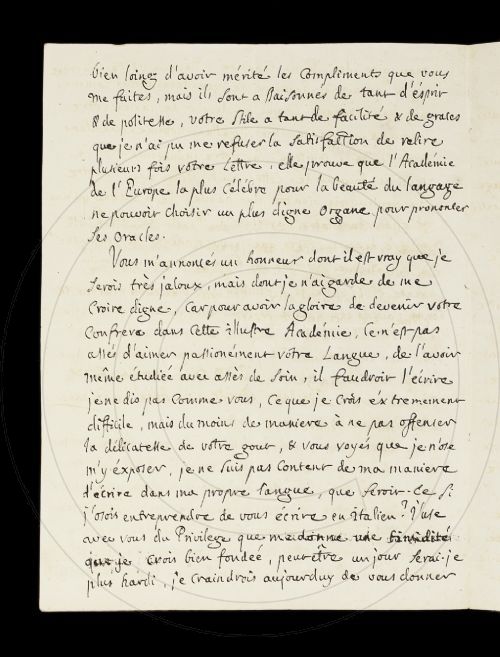 bien loing d'avoir mérité les Compliments que vous
me faites, mais ils sont assaisonnés de tant d'ésprit
& de politesse, votre stile a tant de facilité & de graces
que je n'ai pu me refuser la satisfaction de relire
plusieurs fois votre Lettre, elle prouve que l'Académie
de l'Europe la plus Célébre pour la beauté du langage
ne pouvoir choisir un plus digne Organe pour prononcer
ses Oracles.
Vous m'annoncés un honneur dont il est vray que je
serois très jaloux, mais dont je n'ai garde de me
Croire digne, Car pour avoir la gloire de devenir votre
Confrere dans Cette illustre Académie, Ce n'est pas
assés d'aimer passionément votre Langue, de l'avoir
même étudiée avec assés de soin, il faudroit l'écrire
je ne dis pas Comme vous, Ce que je Crois éxtremement
difficile, mais du moins de maniere à ne pas offenser
la délicatesse de votre gout, & vous voyés que je n'ose
m'y éxposer, je ne suis pas Content de ma maniere
d'écrire dans ma propre langue, que seroit-Ce si
j'osois entreprendre de vous écrire en Italien? J'use
avec vous du Privilege que me donne une timidité
que je Crois bien fondée, peut être un jour serai-je
plus hardi, je craindrois aujourduy de vous donner